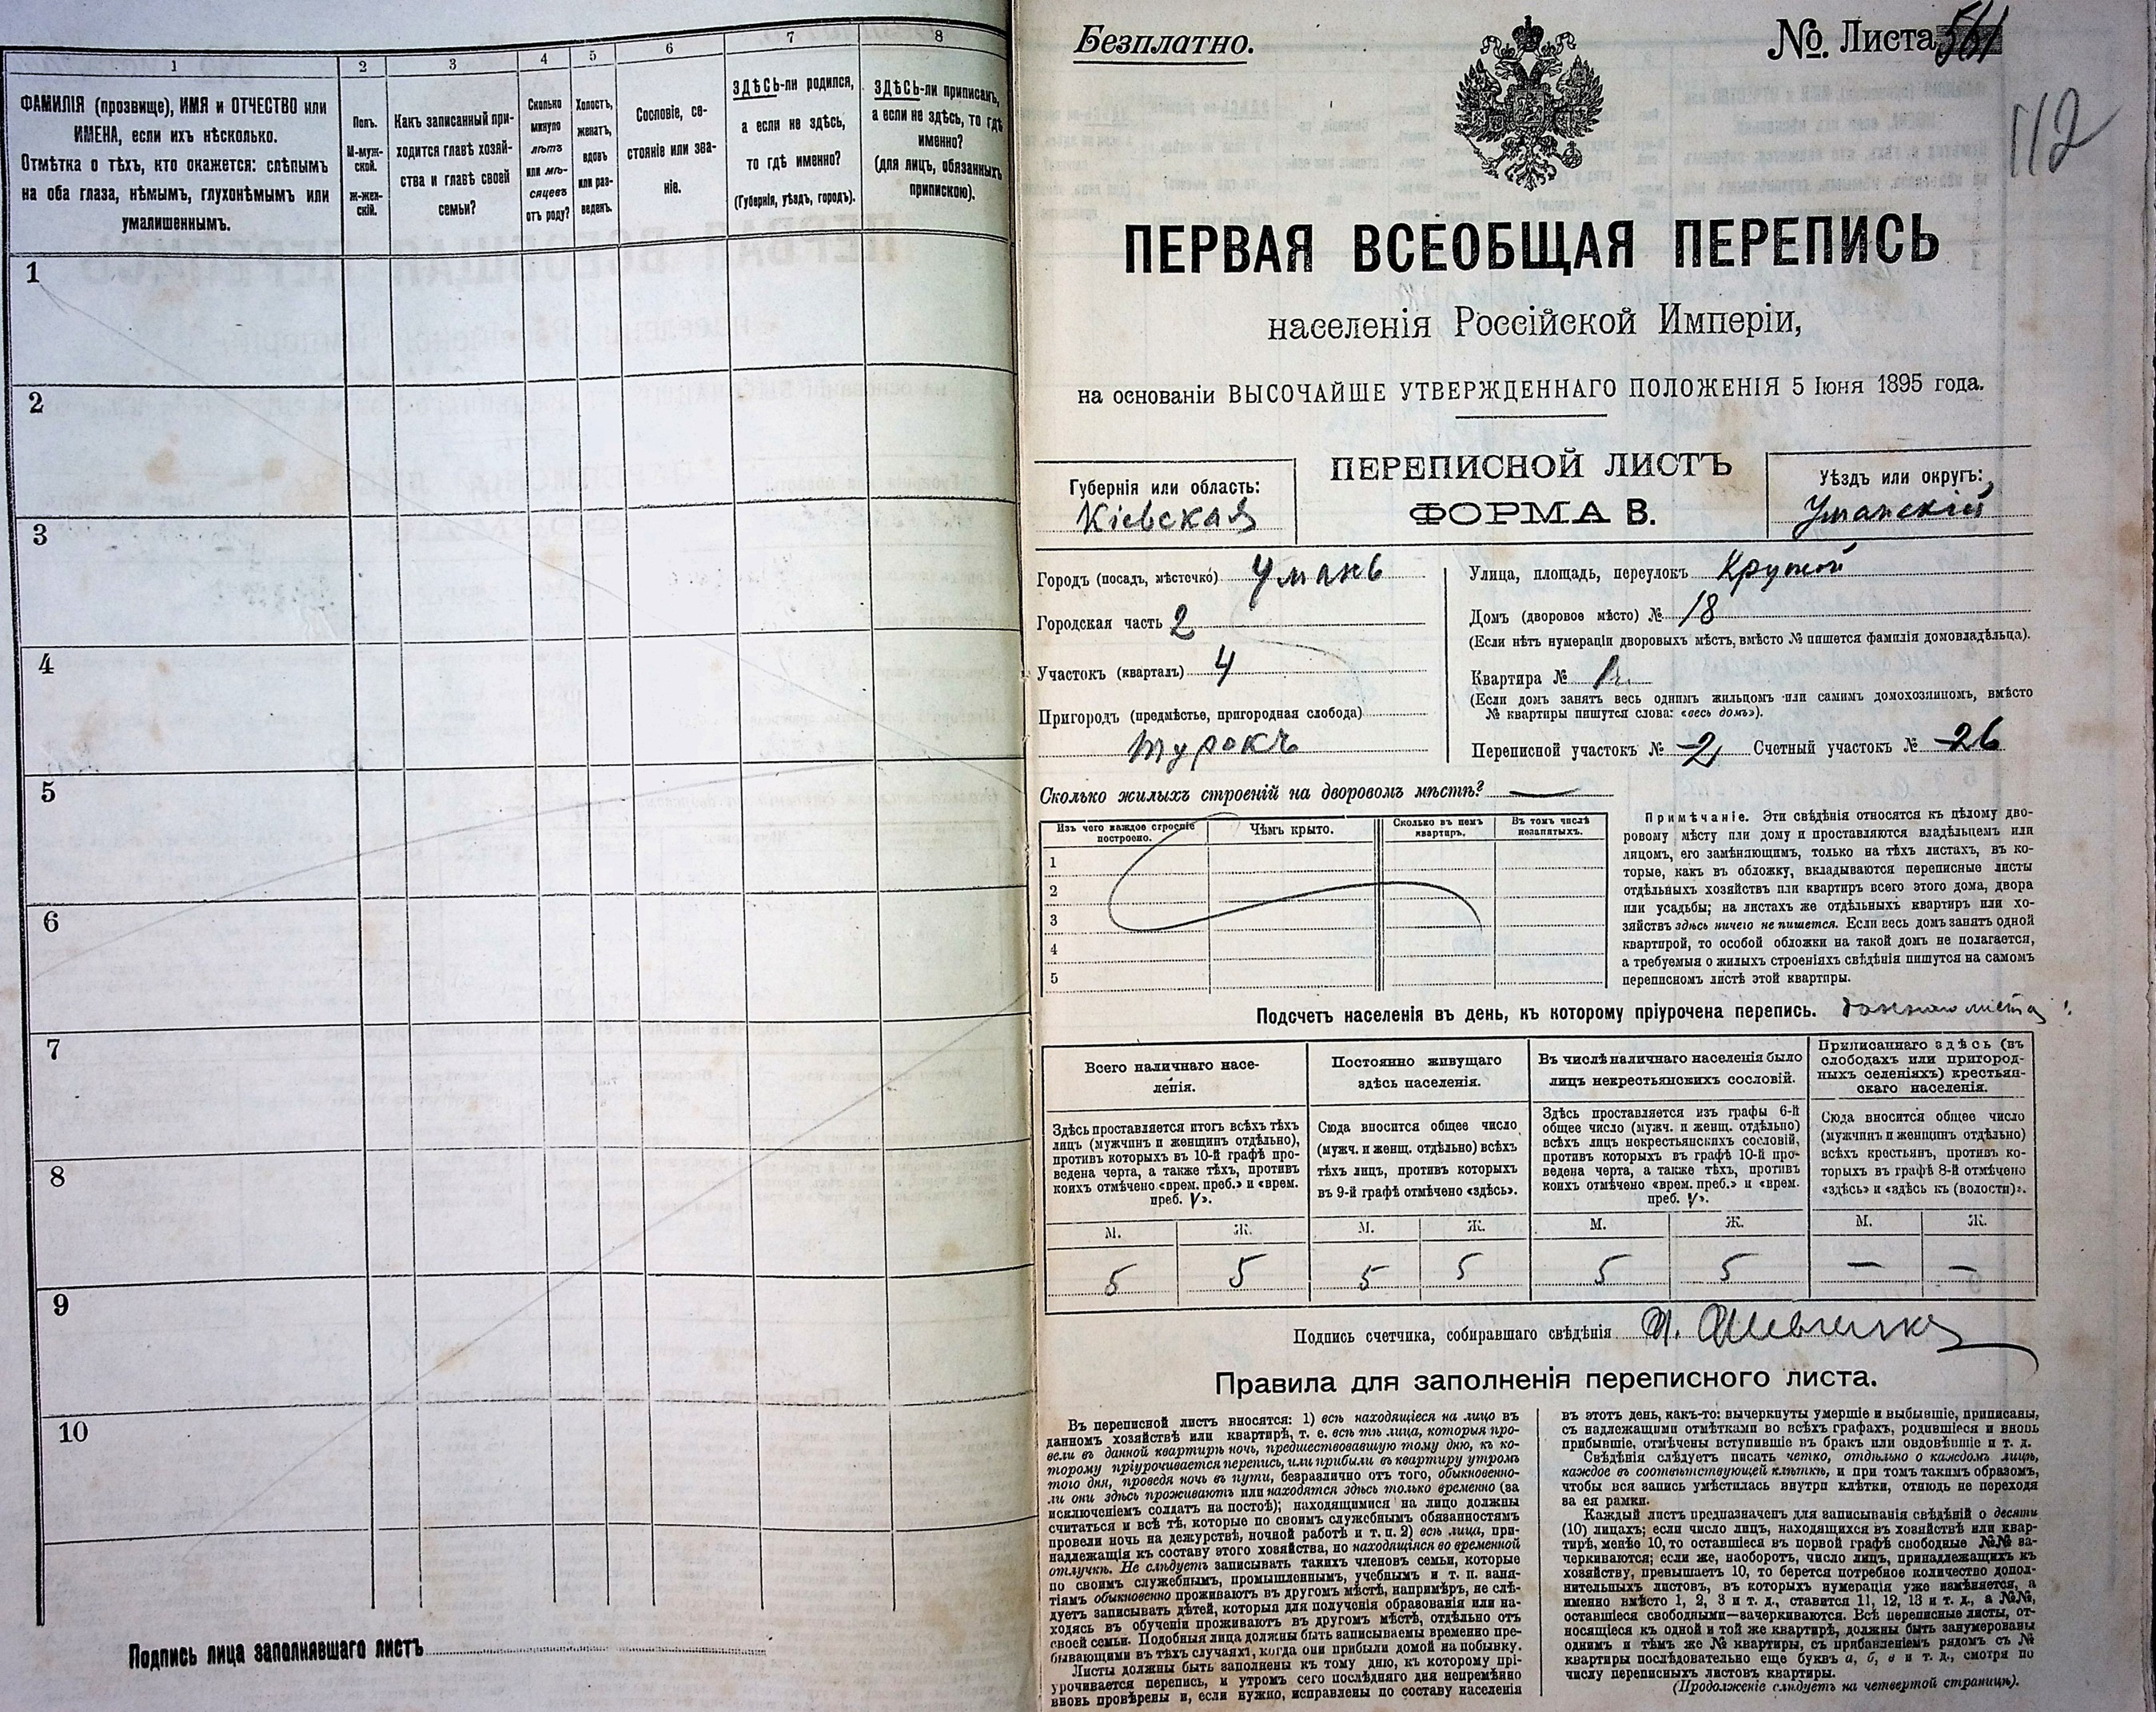 1
2
3
4
5
6
7
8
ФАМИЛІЯ (прозвище), ИМЯ и ОТЧЕСТВО или
ИМЕНА, если ихъ нѣсколько.
Отмѣтка о тѣхъ, кто окажется: слѣпымъ
на оба глаза, нѣмымъ, глухонѣмымъ или
умалишеннымъ.
Полъ.
М-муж-
ской.
Ж-жен-
скій.
Какъ записанный при-
ходится главѣ хозяй-
ства и главѣ своей
семьи?
Сколько
минуло
лѣтъ
или мѣ-
сяцевъ
отъ роду?
Холостъ,
женатъ,
вдовъ
или раз-
веденъ.
Сословіе, со-
стояніе или зва-
ніе.
ЗДѢСЬ-ли родился,
а если не здѣсь,
то гдѣ именно?
(Губернія, уѣздъ, городъ).
ЗДѢСЬ-ли приписанъ,
а если не здѣсь, то гдѣ
именно?
(для лицъ, обязанныхъ
припискою).
1
2
3
4
5
6
7
8
9
10
Подпись лица заполнявшаго листъ
Безплатно.
№ Листа 561
112
ПЕРВАЯ ВСЕОБЩАЯ ПЕРЕПИСЬ
населенія Россійской Имперіи,
на основаніи ВЫСОЧАЙШЕ УТВЕРЖДЕННАГО ПОЛОЖЕНІЯ 5 Іюня 1895 года.
Губернія или область:
Кіевская
ПЕРЕПИСНОЙ ЛИСТЪ
ФОРМА В.
Уѣздъ или округъ:
Уманскій
Городъ (посадъ, мѣстечко) Умань
Городская часть 2
Участокъ (кварталъ) 4
Пригородъ (предмѣстье, пригородная слобода)
Турокъ
Улица, площадь, переулокъ Крутой
Домъ (дворовое мѣсто) № 18
(Если нѣтъ нумераціи дворовыхъ мѣстъ, вмѣсто № пишется фамилія домовладѣльца).
Квартира №
(Если домъ занятъ весь однимъ жильцомъ или самимъ домохозяиномъ, вмѣсто
№ квартиры пишутся слова: «весь домъ»).
Переписной участокъ № 2 Счетный участокъ № 26
Сколько жилыхъ строеній на дворовомъ мѣстѣ? —
Изъ чего каждое строеніе
построено.
Чѣмъ крыто.
Сколько въ немъ
квартиръ.
Въ томъ числѣ
незанятыхъ.
1
2
3
4
5
Примѣчаніе. Эти свѣдѣнія относятся къ цѣлому дво-
ровому мѣсту или дому и проставляются владѣльцемъ или
лицомъ, его замѣняющимъ, только на тѣхъ листахъ, въ ко-
торые, какъ въ обложку, вкладываются переписные листы
отдѣльныхъ хозяйствъ или квартиръ всего этого дома, двора
или усадьбы; на листахъ же отдѣльныхъ квартиръ или хо-
зяйствъ здѣсь ничего не пишется. Если весь домъ занятъ одной
квартирой, то особой обложки на такой домъ не полагается,
а требуемыя о жилыхъ строеніяхъ свѣдѣнія пишутся на самомъ
переписномъ листѣ этой квартиры.
Подсчетъ населенія въ день, къ которому пріурочена перепись.
Всего наличнаго насе-
ленія.
Постоянно живущаго
здѣсь населенія.
Въ числѣ наличнаго населенія было
лицъ некрестьянскихъ сословій.
Приписаннаго здѣсь (въ
слободахъ или пригород-
ныхъ селеніяхъ) крестьян-
скаго населенія.
Здѣсь проставляется итогъ всѣхъ тѣхъ
лицъ (мужчинъ и женщинъ отдѣльно),
противъ которыхъ въ 10-й графѣ про-
ведена черта, а также тѣхъ, противъ
коихъ отмѣчено «врем. преб.» и «врем.
преб. V».
Сюда вносится общее число
(мужч. и женщ. отдѣльно) всѣхъ
тѣхъ лицъ, противъ которыхъ
въ 9-й графѣ отмѣчено «здѣсь».
Здѣсь проставляется изъ графы 6-й
общее число (мужч. и женщ. отдѣльно)
всѣхъ лицъ некрестьянскихъ сословій,
противъ которыхъ въ графѣ 10-й про-
ведена черта, а также тѣхъ, противъ
коихъ отмѣчено «врем. преб.» и «врем.
преб. V».
Сюда вносится общее число
(мужчинъ и женщинъ отдѣльно)
всѣхъ крестьянъ, противъ ко-
торыхъ въ графѣ 8-й отмѣчено
«здѣсь» и «здѣсь къ (волости)».
М. Ж. М. Ж. М. Ж. М. Ж.
5 5 5 5 5 5 — —
Подпись счетчика, собиравшаго свѣдѣнія
Правила для заполненія переписного листа.
Въ переписной листъ вносятся: 1) всѣ находящіеся на лицо въ
данномъ хозяйствѣ или квартирѣ, т. е. всѣ тѣ лица, которыя про-
вели въ данной квартирѣ ночь, предшествовавшую тому дню, къ ко-
торому пріурочивается перепись, или прибыли въ квартиру утромъ
того дня, проведя ночь въ пути, безразлично отъ того, обыкновенно-
ли они здѣсь проживаютъ или находятся здѣсь только временно (за
исключеніемъ солдатъ на постоѣ); находящимися на лицо должны
считаться и всѣ тѣ, которые по своимъ служебнымъ обязанностямъ
провели ночь на дежурствѣ, ночной работѣ и т. п. 2) всѣ лица, при-
надлежащія къ составу этого хозяйства, но находящіяся во временной
отлучкѣ. Не слѣдуетъ записывать такихъ членовъ семьи, которые
по своимъ служебнымъ, промышленнымъ, учебнымъ и т. п. заня-
тіямъ обыкновенно проживаютъ въ другомъ мѣстѣ, напримѣръ, не слѣ-
дуетъ записывать дѣтей, которыя для полученія образованія или на-
ходясь въ обученіи проживаютъ въ другомъ мѣстѣ, отдѣльно отъ
своей семьи. Подобныя лица должны быть записываемы временно пре-
бывающими въ тѣхъ случаяхъ, когда они прибыли домой на побывку.
Листы должны быть заполнены къ тому дню, къ которому прі-
урочивается перепись, и утромъ сего послѣдняго дня непремѣнно
вновь провѣрены и, если нужно, исправлены по составу населенія
въ этотъ день, какъ-то: вычеркнуты умершіе и выбывшіе, приписаны,
съ надлежащими отмѣтками во всѣхъ графахъ, родившіеся и вновь
прибывшіе, отмѣчены вступившіе въ бракъ или овдовѣвшіе и т. д.
Свѣдѣнія слѣдуетъ писать четко, отдѣльно о каждомъ лицѣ,
каждое въ соотвѣтствующей клѣткѣ, и при томъ такимъ образомъ,
чтобы вся запись умѣстилась внутри клѣтки, отнюдь не переходя
за ея рамки.
Каждый листъ предназначенъ для записыванія свѣдѣній о десяти
(10) лицахъ; если число лицъ, находящихся въ хозяйствѣ или квар-
тирѣ, менѣе 10, то оставшіеся въ первой графѣ свободные №№ за-
черкиваются; если же, наоборотъ, число лицъ, принадлежащихъ къ
хозяйству, превышаетъ 10, то берется потребное количество допол-
нительныхъ листовъ, въ которыхъ нумерація уже измѣняется, а
именно вмѣсто 1, 2, 3 и т. д., ставится 11, 12, 13 и т. д., а №№,
оставшіеся свободными—зачеркиваются. Всѣ переписные листы, от-
носящіеся къ одной и той же квартирѣ, должны быть занумерованы
однимъ и тѣмъ же № квартиры, съ прибавленіемъ рядомъ съ №
квартиры послѣдовательно еще буквъ а, б, в и т. д., смотря по
числу переписныхъ листовъ квартиры.
(Продолженіе слѣдуетъ на четвертой страницѣ).